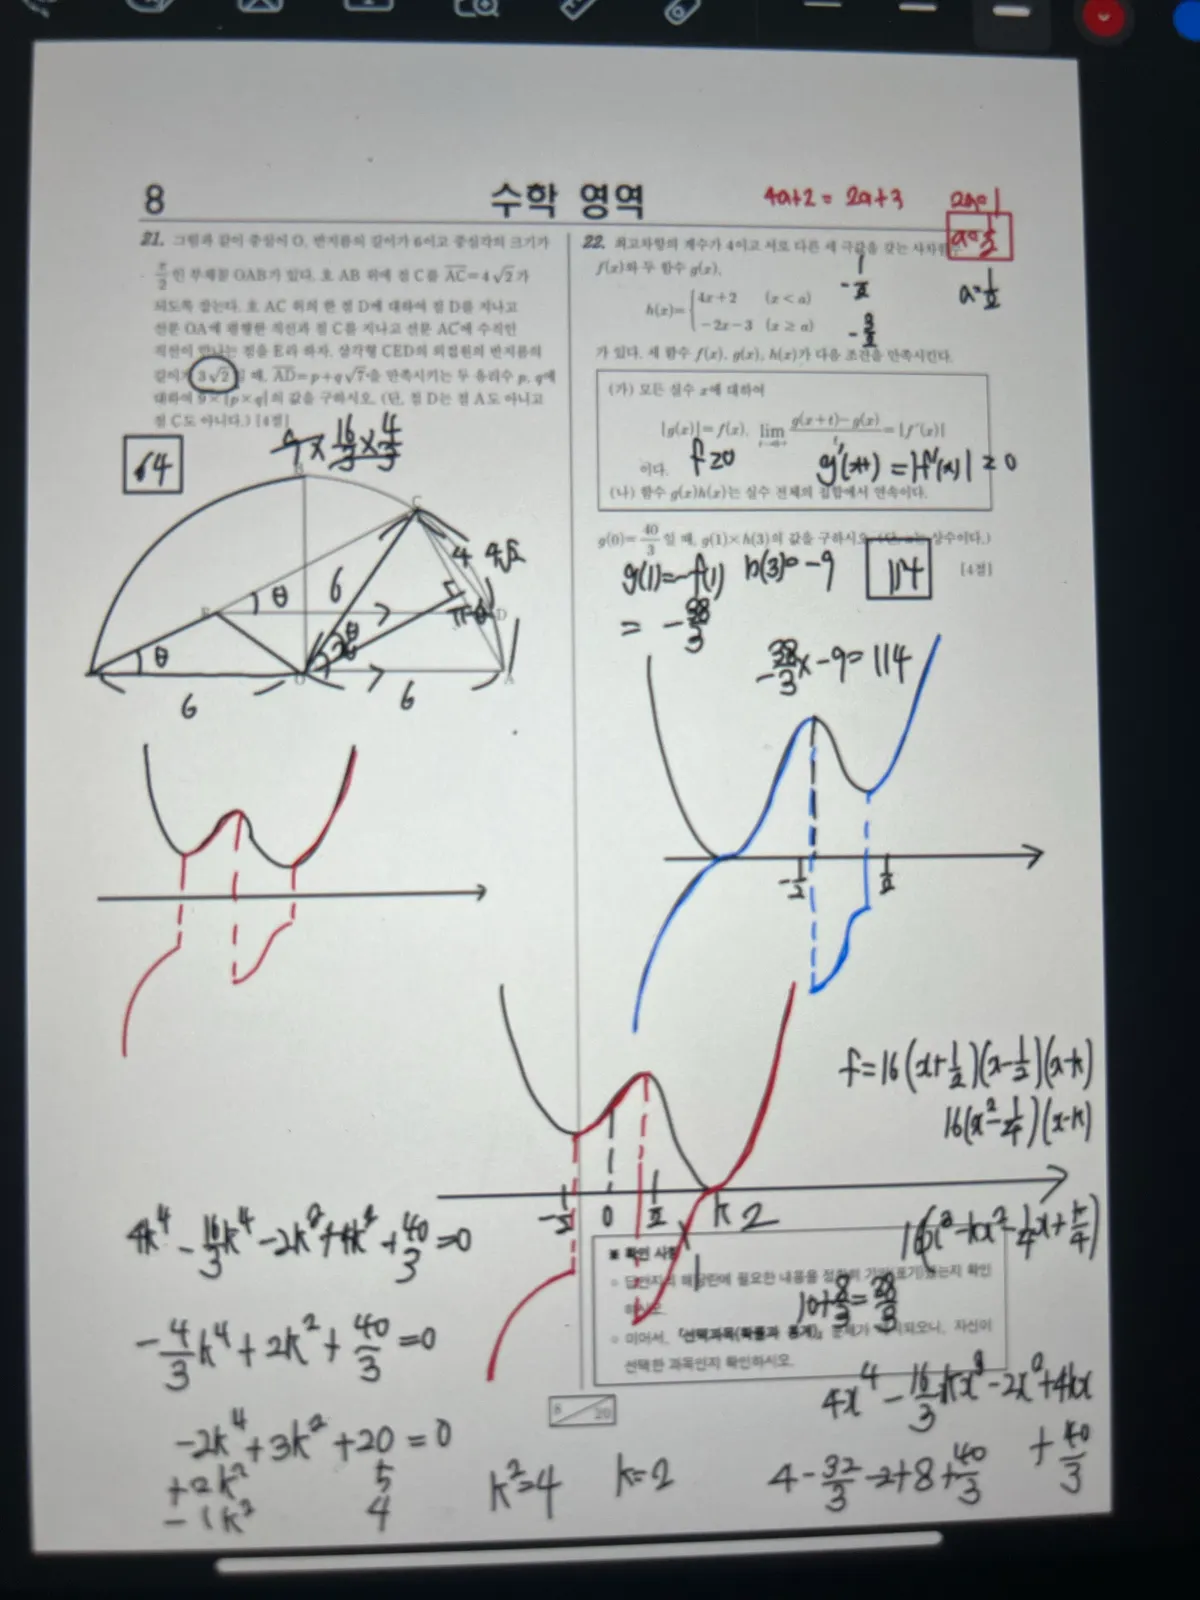 8
수학 영역
4a+2 = 2a+3
2a=1
a=1/2
a=1/2
21. 그림과 같이 중심이 O, 반지름의 길이가 6이고 중심각의 크기가
π/2인 부채꼴 OAB가 있다. 호 AB 위에 점 C를 AC=4√2가
되도록 잡는다. 호 AC 위의 한 점 D에 대하여 점 D를 지나고
선분 OA에 평행한 직선과 점 C를 지나고 선분 AC에 수직인
직선이 만나는 점을 E라 하자. 삼각형 CED의 외접원의 반지름의
길이가 3√2일 때, AD=p+q√7을 만족시키는 두 유리수 p, q에
대하여 9×|p×q|의 값을 구하시오. (단, 점 D는 점 A도 아니고
점 C도 아니다.) [4점]
9×16/3×4/3
64
B
C
E
D
O
A
θ
θ
6
4
4√2
π-θ
6
6
22. 최고차항의 계수가 4이고 서로 다른 세 극값을 갖는 사차함수
f(x)와 두 함수 g(x),
h(x)={4x+2 (x<a)
-2x-3 (x≥a)
-1/2
-3/2
가 있다. 세 함수 f(x), g(x), h(x)가 다음 조건을 만족시킨다.
(가) 모든 실수 x에 대하여
|g(x)|=f(x), lim t→0+ g(x+t)-g(x)/t=|f'(x)|
이다.
f≥0
g'(x+)=|f'(x)|≥0
(나) 함수 g(x)h(x)는 실수 전체의 집합에서 연속이다.
g(0)=40/3일 때, g(1)×h(3)의 값을 구하시오. (단, a는 상수이다.)
[4점]
g(1)=-f(1)
h(3)=-9
114
= -38/3
-38/3×-9=114
-1/2
1/2
f=16(x+1/2)(x-1/2)(x-k)
16(x²-1/4)(x-k)
-1/2
0
1/2
k 2
1
4k⁴-16/3k⁴-2k²+4k²+40/3=0
-4/3k⁴+2k²+40/3=0
-2k⁴+3k²+20=0
+2k² 5
-1k² 4
k²=4
k=2
※ 확인 사항
10+8/3=38/3
선택한 과목인지 확인하시오.
8
20
4x⁴-16/3kx³-2x²+4kx
+40/3
4-32/3-2+8+40/3